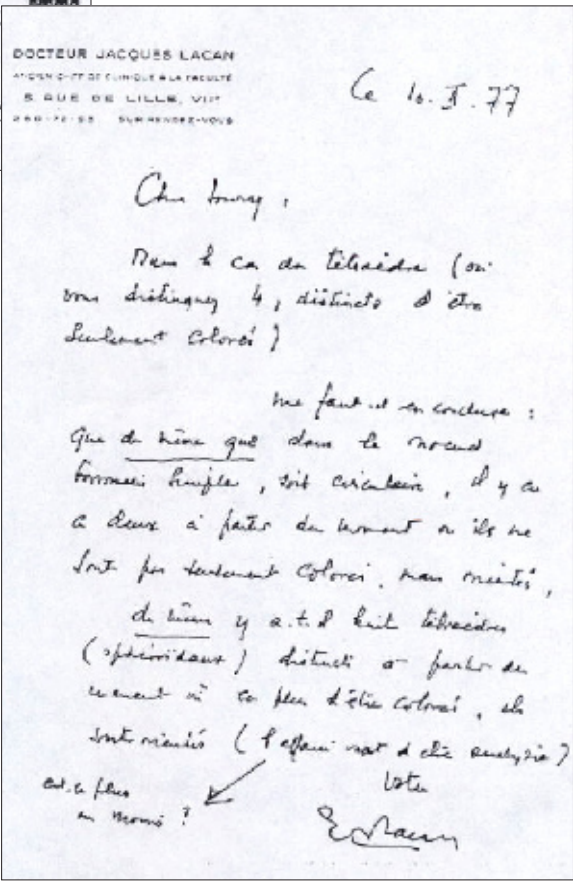 DOCTEUR JACQUES LACAN
ANCIEN CHEF DE CLINIQUE A LA FACULTÉ
5 RUE DE LILLE, VII
SUR RENDEZ-VOUS
Ce 10. X. 77
Cher Soury,
Dans le cas du tétraèdre (où
vous distinguez 4, distincts d'être
seulement colorés)
me faut-il en conclure :
Que de même que dans le noeud
borroméen simple, soit circulaire, il y en
a deux à partir du moment où ils ne
sont pas seulement colorés, mais orientés,
de même y a-t-il huit tétraèdres
distincts à partir du
moment où en plus d'être colorés, ils
sont orientés (l'affaire vaut d'être
Votre
est-ce plus
ou moins ?
J. Lacan